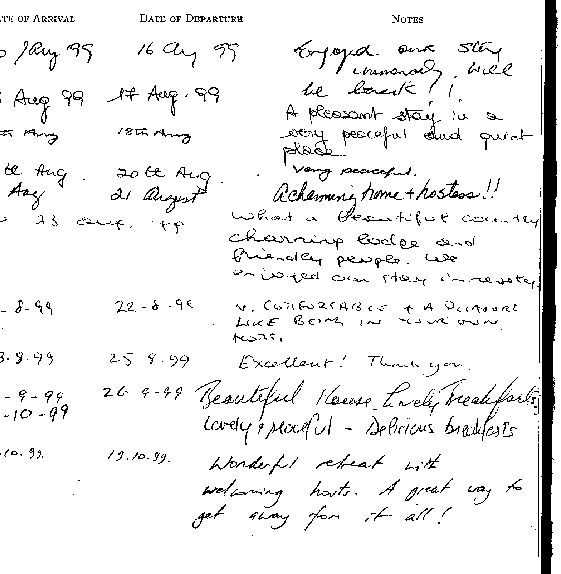 TE OF ARRIVAL DATE OF DEPARTURE NOTES
Aug 99 16 Aug 99 Enjoyed our stay
immensely. Will
be back!!
Aug 99 17 Aug. 99 A pleasant stay in a
Aug 18th Aug very peaceful and quiet
place
Aug. 20th Aug very peaceful.
Aug 21 August A charming home + hostess!!
23 Aug. 99 What a beautiful country
charming lodge and
friendly people. We
enjoyed our stay immensely
-8-99 22-8-99 V. COMFORTABLE + A PLEASURE
LIKE BEING IN YOUR OWN
8.99 25 8.99 Excellent! Thank you.
-9-99 26 9-99 Beautiful House, lovely Breakfasts
-10-99 lovely & peaceful - Delicious breakfasts
.10.99. 19.10.99. Wonderful retreat with
welcoming hosts. A great way to
get away from it all!